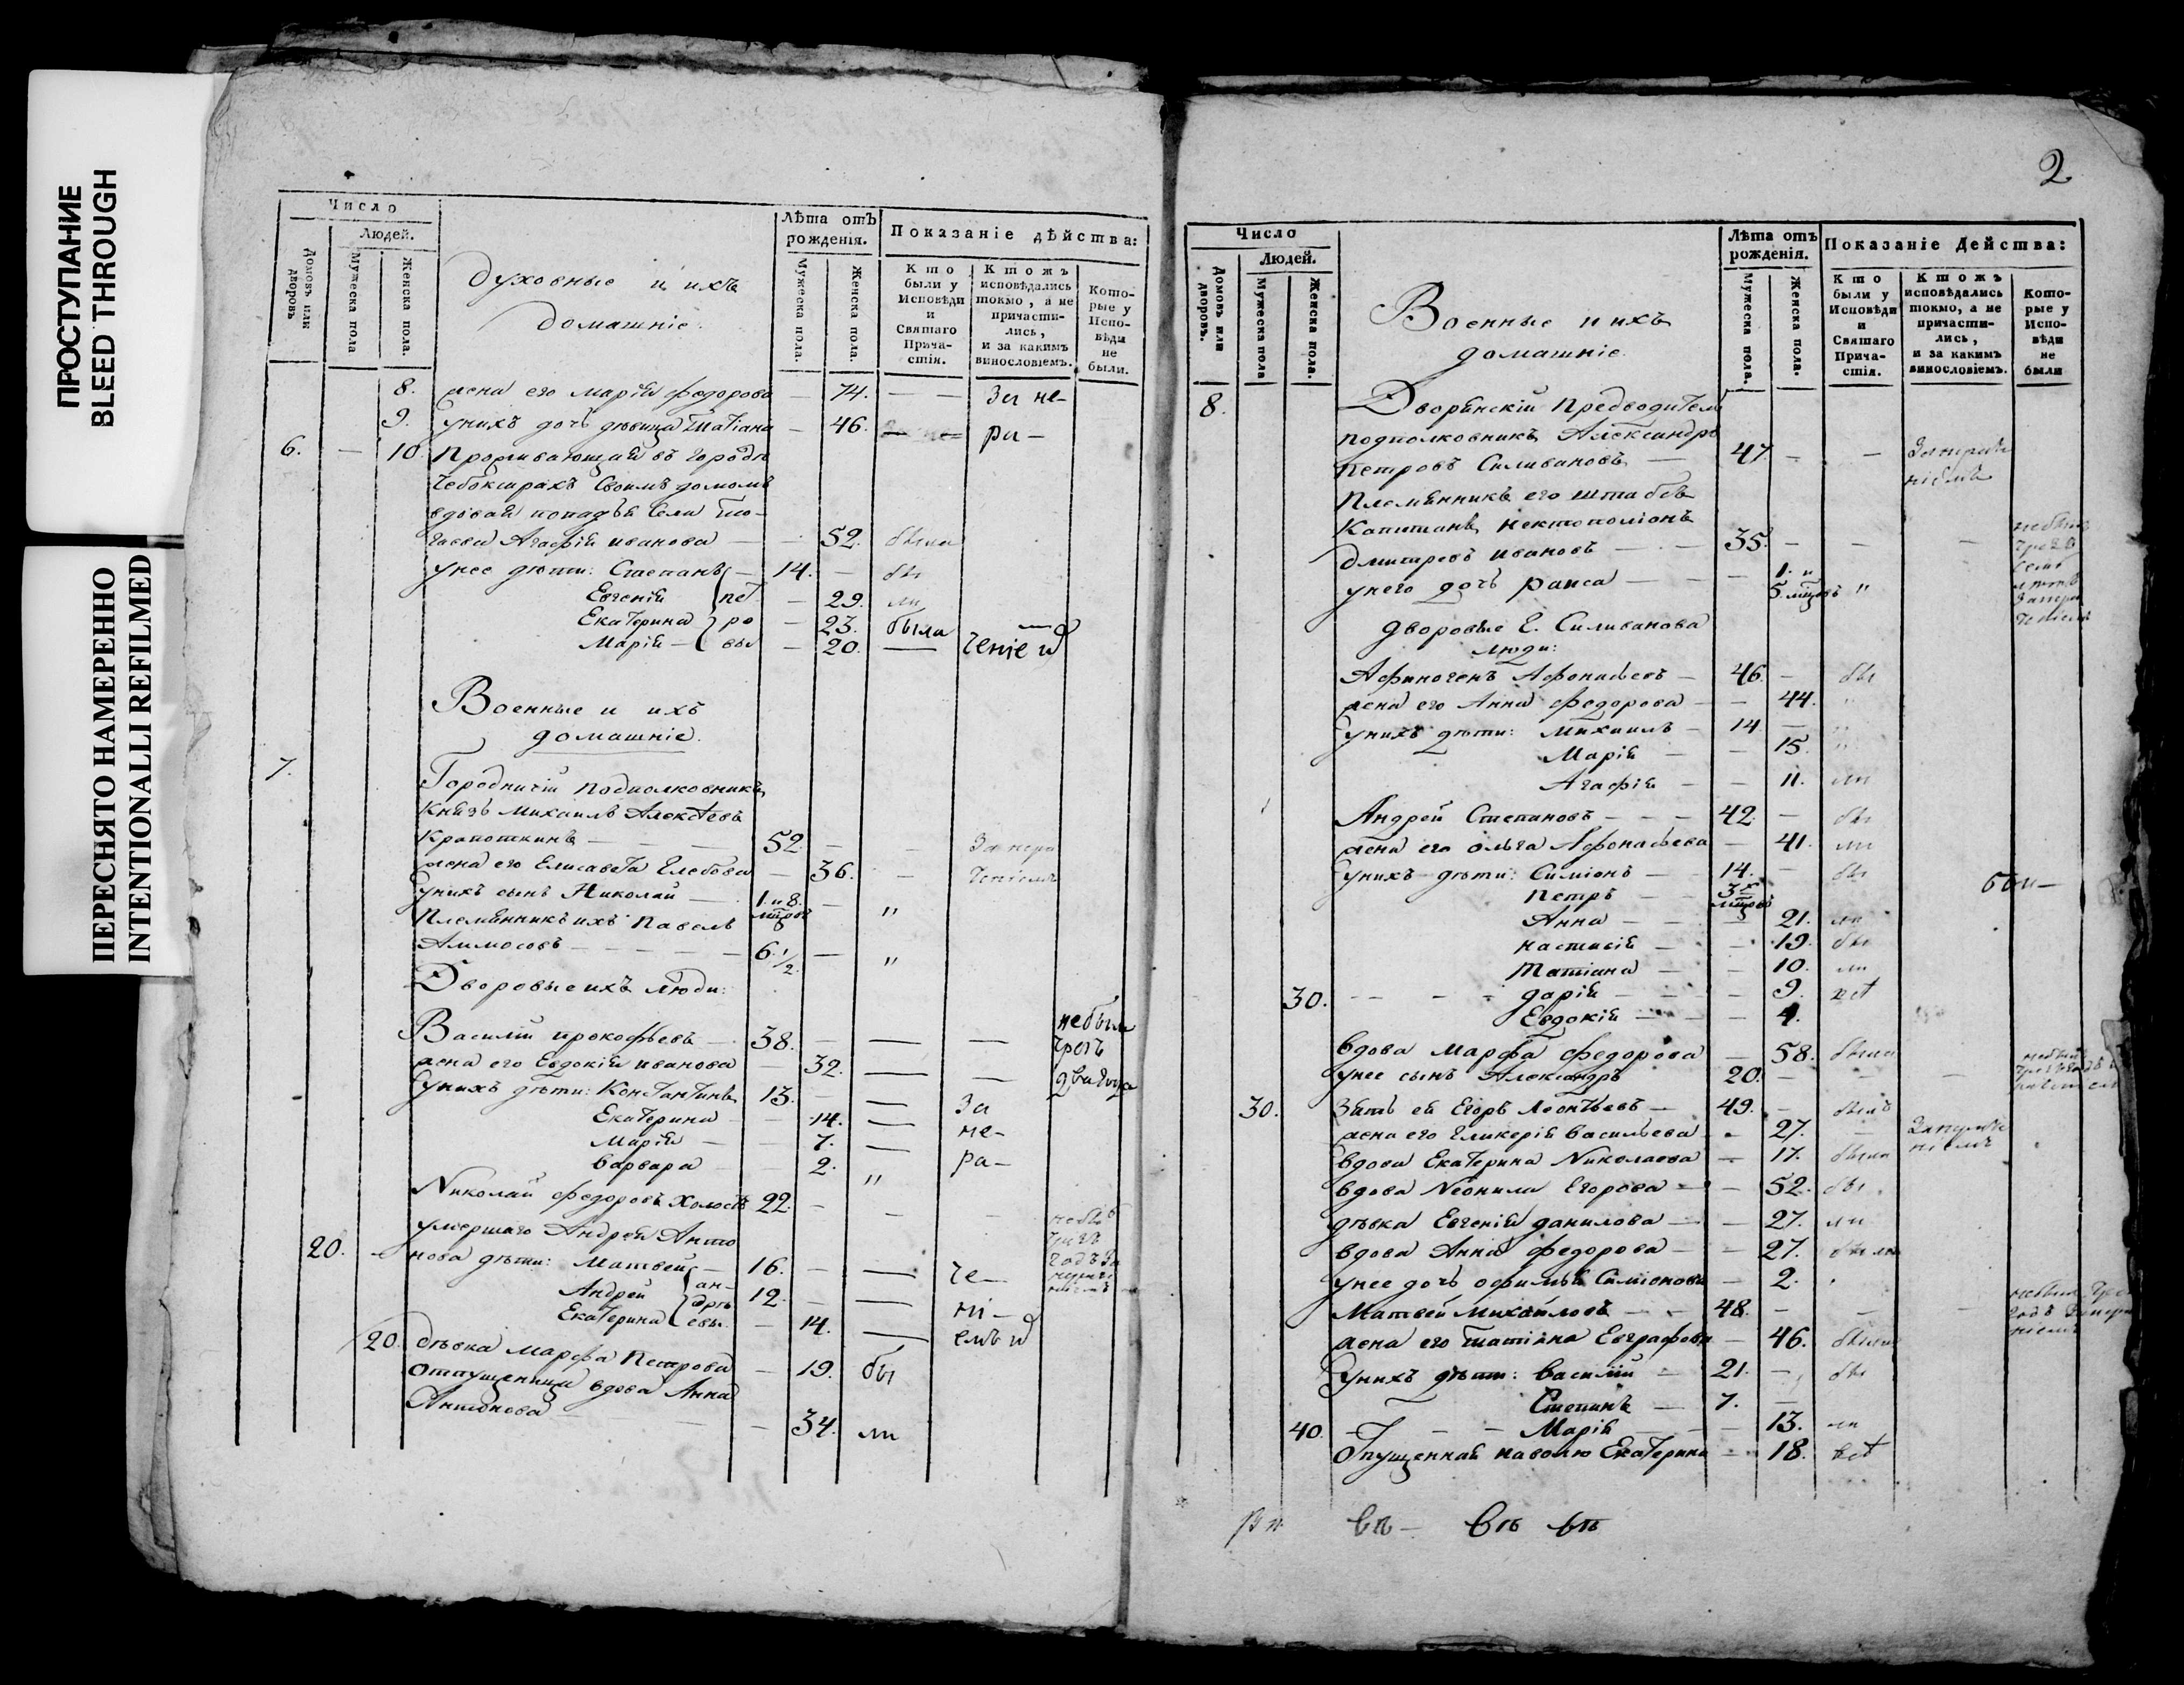 ПРОСТУПАНИЕ
BLEED THROUGH
ПЕРЕСНЯТО НАМЕРЕННО
INTENTIONALLI REFILMED
Число
Людей.
Домовъ или дворовъ
Мужеска пола
Женска пола.
Духовные и ихъ
домашніе.
Лѣта отъ рожденія.
Мужеска пола.
Женска пола.
Показаніе дѣйства:
Кто были у Исповѣди и Святаго Прича-стія.
Ктожъ исповѣдались токмо, а не причасти-лись, и за какимъ винословіемъ.
Кото-рые у Испо-вѣди не были.
8. жена его Марія Федорова — 74. — — За не-
9. у нихъ дочь девица Татіана — 46. ра-
6. — 10. Проживающая въ городѣ
Чебоксарахъ своимъ домомъ
вдовая попадья села
Агафія Иванова — 52. была
у нее дѣти: Степанъ — 14. — бы
Евгенія пет — 29. ли
Екатерина ро — 23. была
Марія — вы — 20. — ченіе
Военные и ихъ
домашніе.
7. Городничій подполковникъ
Князь Михаилъ Алексѣевъ
Кропоткинъ — 52. — — За нера
жена его Елисавета Глебова — 36. — ченіемъ
у нихъ сынъ Николай — 1. и 8. мцовъ — "
Племянникъ ихъ Павелъ
6. 1/2. — "
Дворовые ихъ люди:
Василій Прокофьевъ — 38. — — — не были
жена его Евдокія Иванова — 32. — — чрезъ
у нихъ дѣти: Константинъ 13. — — За два года
Екатерина — 14. — не-
Марія — 7. — ра-
Варвара 2. "
Николай Федоровъ холостъ 22. — — —
умершаго Андрея Анто
20. — нова дѣти: Матвей — 16. — — че-
Андрей ан- 12. — — ні-
Екатерина дре евы. — 14. — емъ
20. дѣвка Марфа Петрова — 19. бы
отпущенница вдова Анна
Антонова — — 34. ли
2
Число
Людей.
Домовъ или дворовъ.
Мужеска пола
Женска пола.
Военные и ихъ
домашніе.
Лѣта отъ рожденія.
Мужеска пола.
Женска пола.
Показаніе Действа:
Кто были у Исповѣди и Святаго Прича-стія.
Ктожъ исповѣдались токмо, а не причасти-лись, и за какимъ винословіемъ.
Кото-рые у Испо-вѣди не были
8. Дворянскій Предводитель
подполковникъ Александръ
Петровъ Силивановъ — 47. — —
Племянникъ его штабсъ
Капитанъ
Дмитревъ Ивановъ — 35. — — —
у него дочь Раиса — — 1. и 5. мцовъ "
дворовые Г. Силиванова
люди:
Афиногенъ Афонасьевъ — 46. — бы
жена его Анна Федорова — 44. "
у нихъ дѣти: Михаилъ — 14 — "
Марія — — 15. "
Агафія — — 11. ли
Андрей Степановъ — 42. — бы
жена его Ольга Афонасьева — 41. ли
у нихъ дѣти: Симіонъ — 14. — бы
Петръ — 3х мцовъ
Анна — — 21. ли
Настасія — — 19. бы
Татіана — — 10. ли
30. — — Дарія — — 9.
Евдокія — — 4.
Вдова Марфа Федорова — 58. была
у нее сынъ Александръ 20. — — —
30. Зять ея Егоръ Леонтьевъ — 49. — былъ
жена его Гликерія Васильева — 27. —
вдова Екатерина Николаева — 17. была
вдова Неонила Егорова — 52. бы
дѣвка Евгенія Данилова — 27. ли
вдова Анна Федорова — 27. была
у нее дочь Офимья Симіонова — 2.
Матвей Михайловъ — 48. — —
жена его Татіана Евграфова — 46. была
у нихъ дѣти: Василій — 21. — бы
Степанъ — 7. —
40. — — Марія — — 13. ли
Отпущенная на волю Екатерина — 18.
въ — въ въ